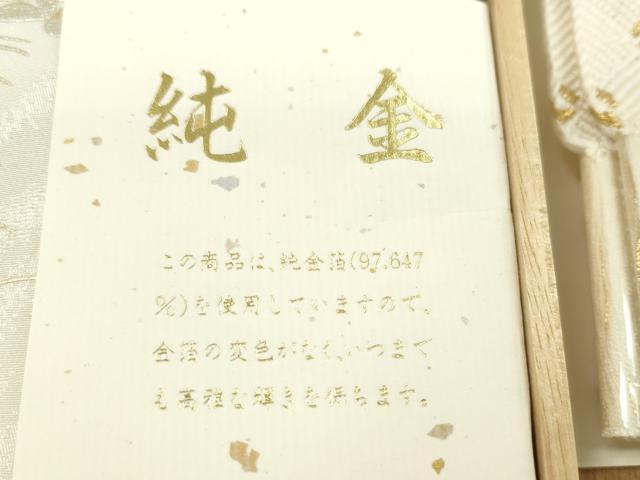 純金
この商品は、純金箔(97.647
%)を使用していますので、
金箔の変色がなく、いつまで
も高雅な輝きを保ちます。